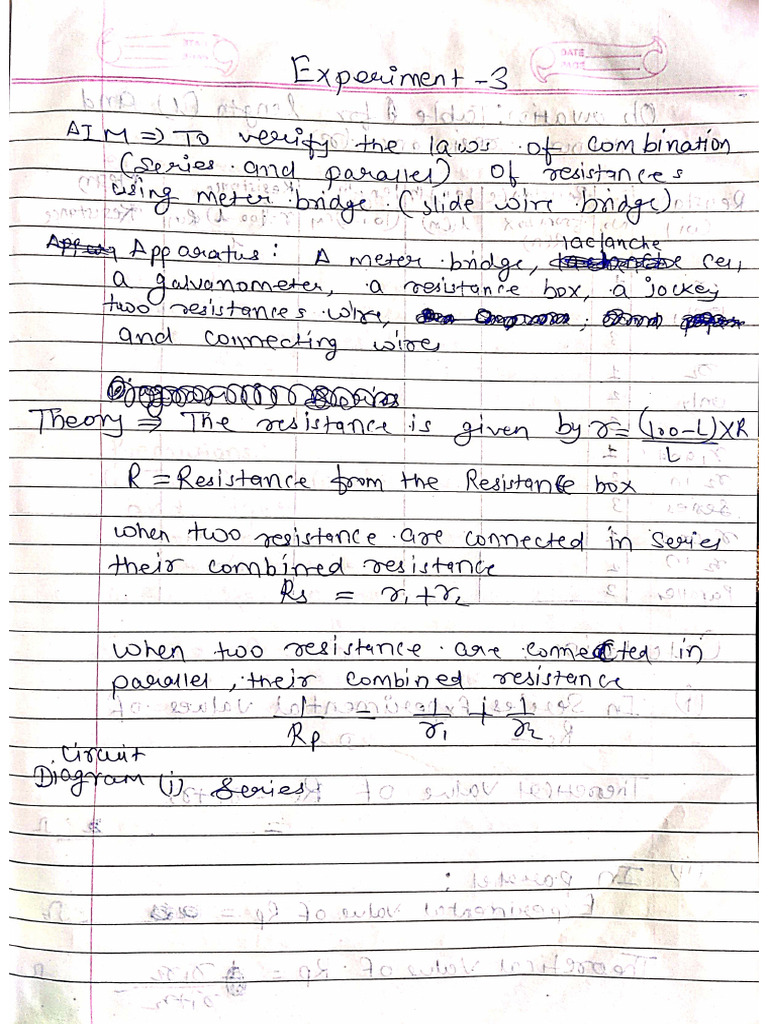 Experiment -3
AIM ⇒ To verify the laws of combination
(series and parallel) of resistances
using meter bridge (slide wire bridge)
Apparatus: A meter bridge, laclanche cell,
a galvanometer, a resistance box, a jockey
two resistances wire,
and connecting wires
Theory ⇒ The resistance is given by r = (100-L)XR / L
R = Resistance from the Resistance box
when two resistance are connected in series
their combined resistance
Rs = r1 + r2
when two resistance are connected in
parallel, their combined resistance
1/Rp = 1/r1 + 1/r2
Circuit
Diagram (i) Series